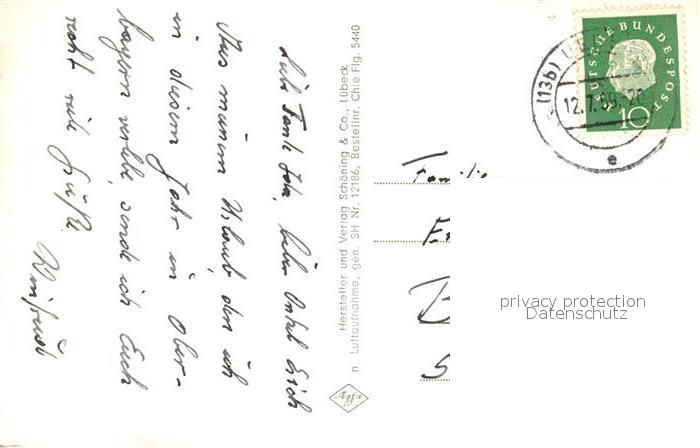 Liebe Tante Ida, lieber Onkel Erich
Aus meinem Urlaub, den ich
in diesem Jahr in Ober-
bayern verlebe, sende ich Euch
recht viele Grüße.
Winfried
Hersteller und Verlag Schöning & Co., Lübeck
n Luftaufnahme, gen. SH Nr. 12186, Bestellnr. Chie Flg. 5440
Agfa
DEUTSCHE BUNDESPOST
10
(13b)
12.7.59-20
e
Familie
privacy protection
Datenschutz